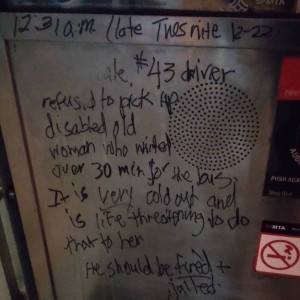 12:31 a.m. (late Tues nite 12-22)
#43 driver
refused to pick up
disabled old
woman who waited
over 30 min for the bus,
It is very cold out and
is life threatening to do
that to her
He should be fired +
jailed.
SEPTA
PUSH AGAIN
SEPTA